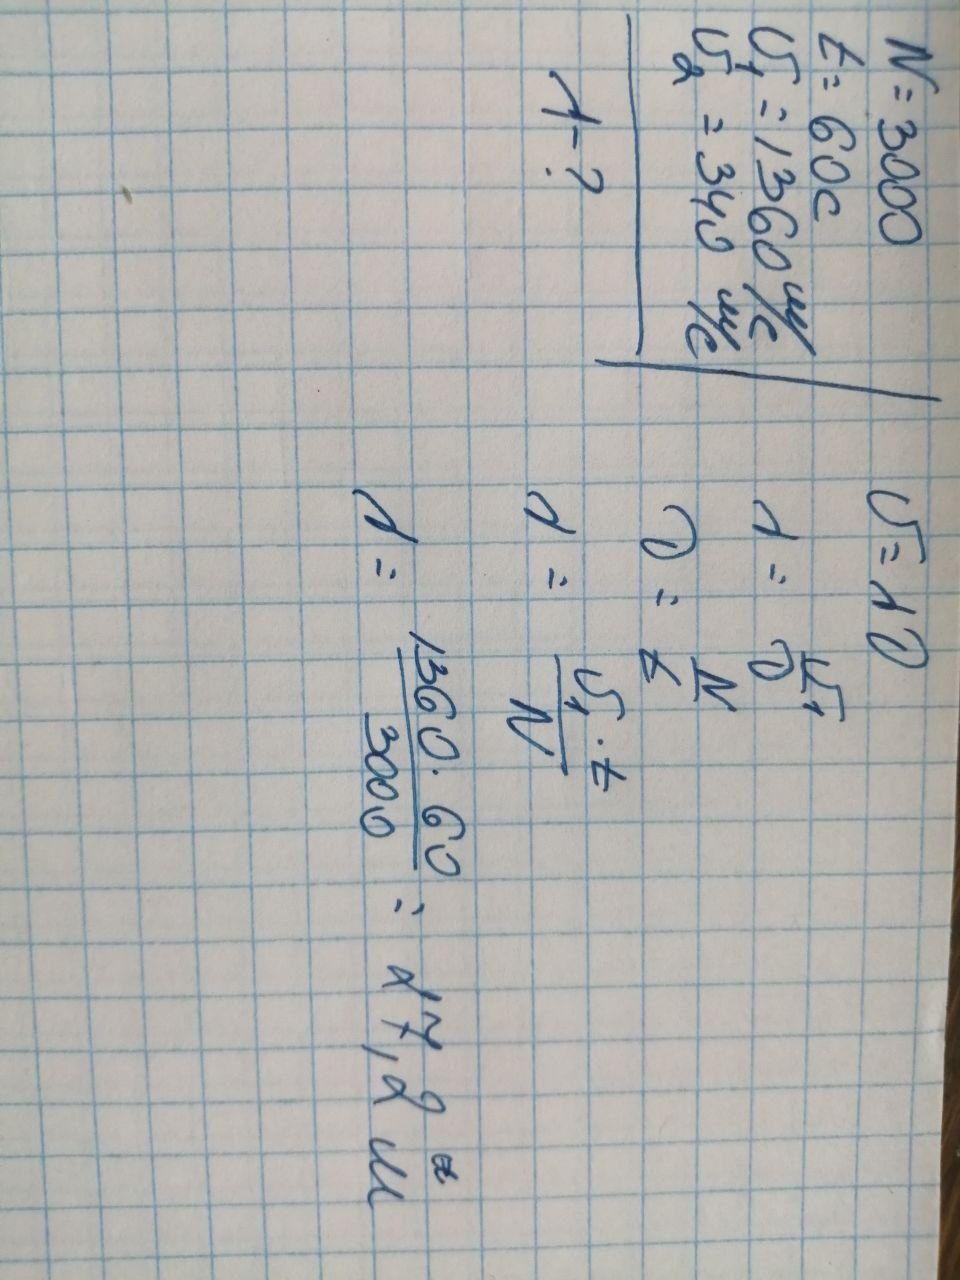 N = 3000
t = 60c
υ₁ = 1360 м/c
υ₂ = 340 м/c
λ - ?
υ = λ ν
λ = υ₁/ν
ν = N/t
λ = υ₁ · t/N
λ = 1360 · 60/3000 = 27,2 м